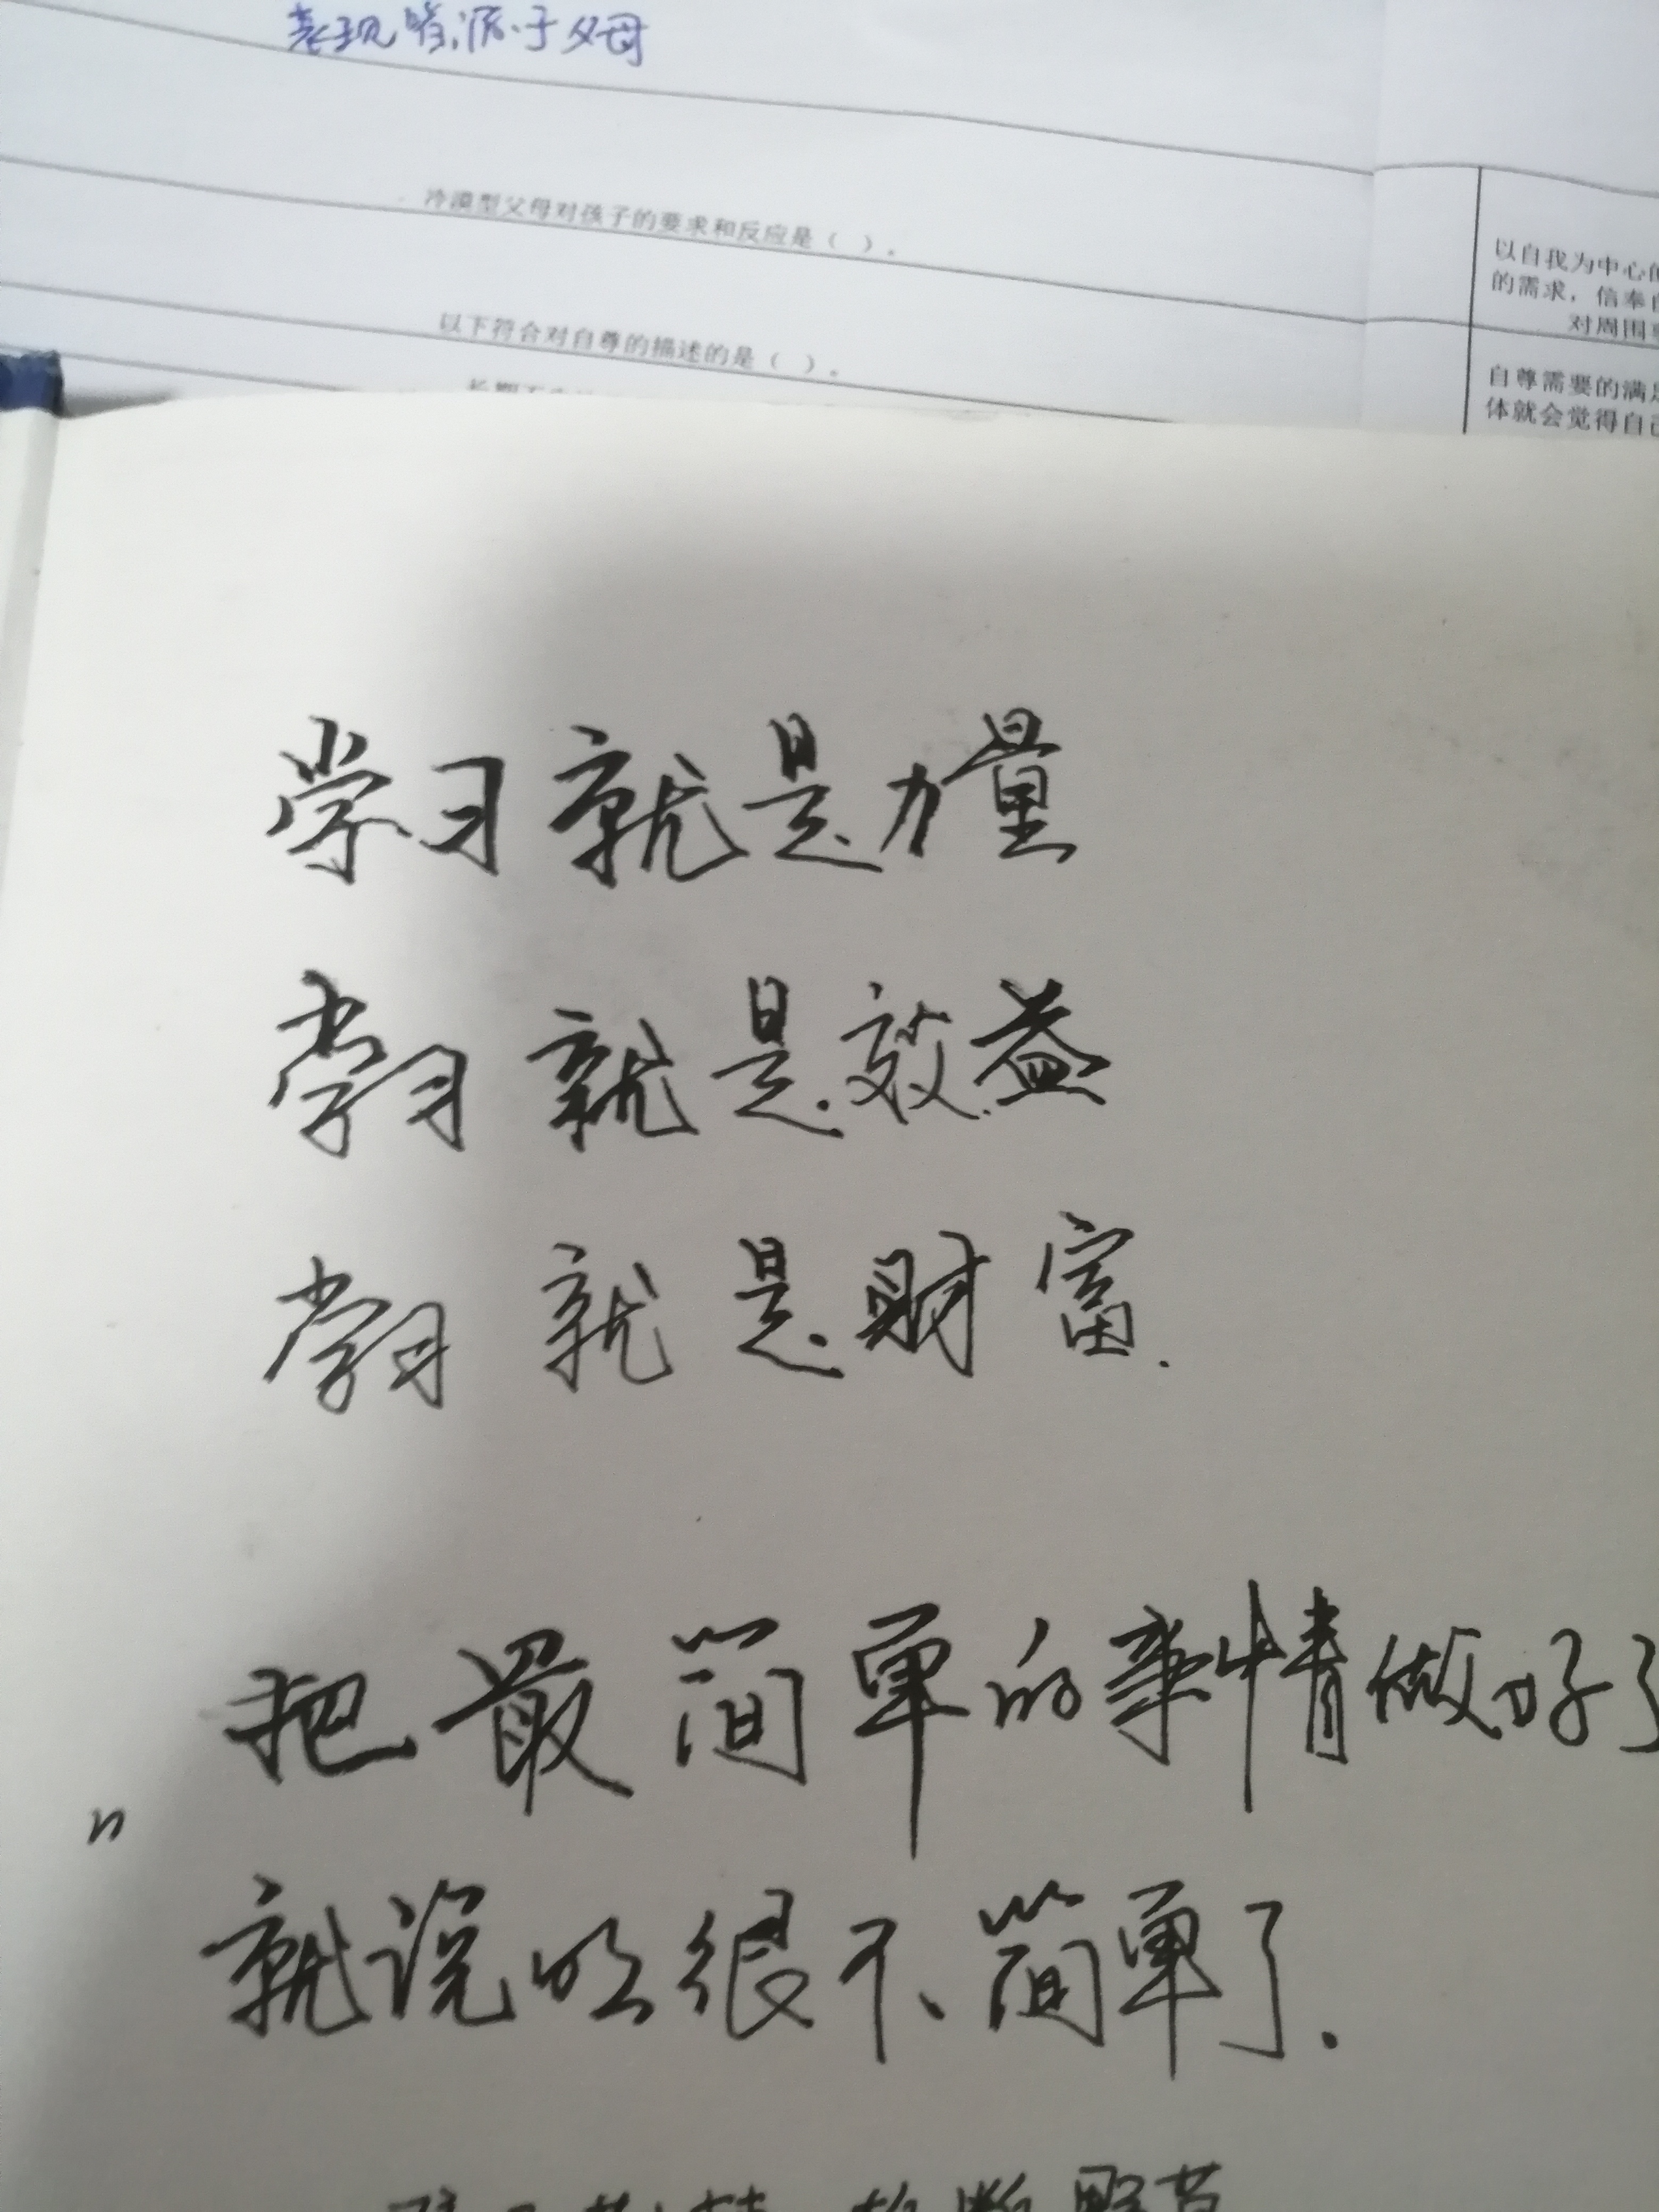 表现皆源于父母
冷漠型父母对孩子的要求和反应是（ ）。
以自我为中心
的需求，信奉
对周围
以下符合对自尊的描述的是（ ）。
自尊需要的满
体就会觉得自
学习就是力量
学习就是效益
学习就是财富.
把最简单的事情做好了
就说明很不简单了.